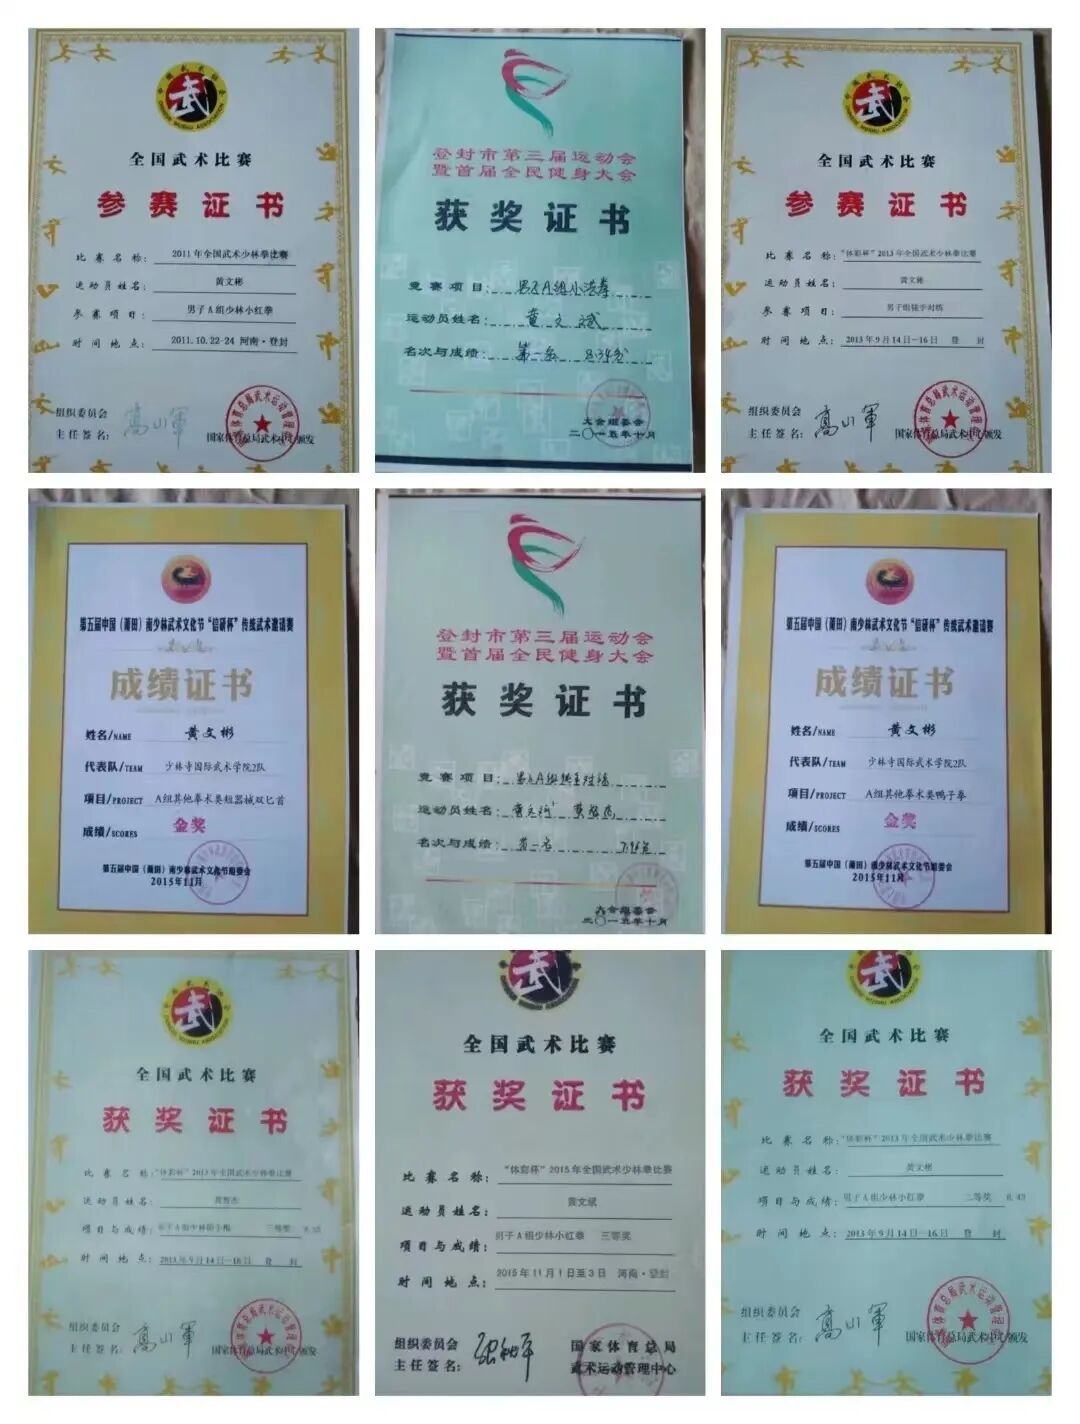 全国武术比赛
参赛证书
比赛名称：2011年全国武术少林拳比赛
运动员姓名：黄文彬
参赛项目：男子A组少林小红拳
时间地点：2011.10.22-24 河南·登封
组织委员会
主任签名：高小軍
国家体育总局武术中心颁发
登封市第三届运动会
暨首届全民健身大会
获奖证书
竞赛项目：男子A组小洪拳
运动员姓名：黄文斌
名次与成绩：第一名
大会组委会
二〇一五年十月
全国武术比赛
参赛证书
比赛名称："体彩杯"2013年全国武术少林拳比赛
运动员姓名：黄文彬
参赛项目：男子组徒手对练
时间地点：2013年9月14日-16日 登 封
组织委员会
主任签名：高小軍
国家体育总局武术中心颁发
第五届中国（莆田）南少林武术文化节"信硕杯"传统武术邀请赛
成绩证书
姓名/NAME 黄文彬
代表队/TEAM 少林寺国际武术学院2队
项目/PROJECT A组其他拳术类短器械双匕首
成绩/SCORES 金奖
第五届中国（莆田）南少林武术文化节组委会
2015年11月
登封市第三届运动会
暨首届全民健身大会
获奖证书
竞赛项目：男子A组徒手对练
运动员姓名：
名次与成绩：第一名
大会组委会
二〇一五年十月
第五届中国（莆田）南少林武术文化节"信硕杯"传统武术邀请赛
成绩证书
姓名/NAME 黄文彬
代表队/TEAM 少林寺国际武术学院2队
项目/PROJECT A组其他拳术类鸭子拳
成绩/SCORES 金奖
第五届中国（莆田）南少林武术文化节组委会
2015年11月
全国武术比赛
获奖证书
比赛名称："体彩杯"2013年全国武术少林拳比赛
运动员姓名：
项目与成绩：男子A组少林 三等奖
时间地点：2013年9月14日-16日 登 封
组织委员会
主任签名：高小軍
国家体育总局武术中心颁发
全国武术比赛
获奖证书
比赛名称："体彩杯"2015年全国武术少林拳比赛
运动员姓名：黄文斌
项目与成绩：男子A组少林小红拳 三等奖
时间地点：2015年11月1日至3日 河南·登封
组织委员会
主任签名：
国家体育总局
武术运动管理中心
全国武术比赛
获奖证书
比赛名称："体彩杯"2013年全国武术少林拳比赛
运动员姓名：黄文彬
项目与成绩：男子A组少林小红拳 二等奖 8.43
时间地点：2013年9月14日-16日 登 封
组织委员会
主任签名：高小軍
国家体育总局武术中心颁发